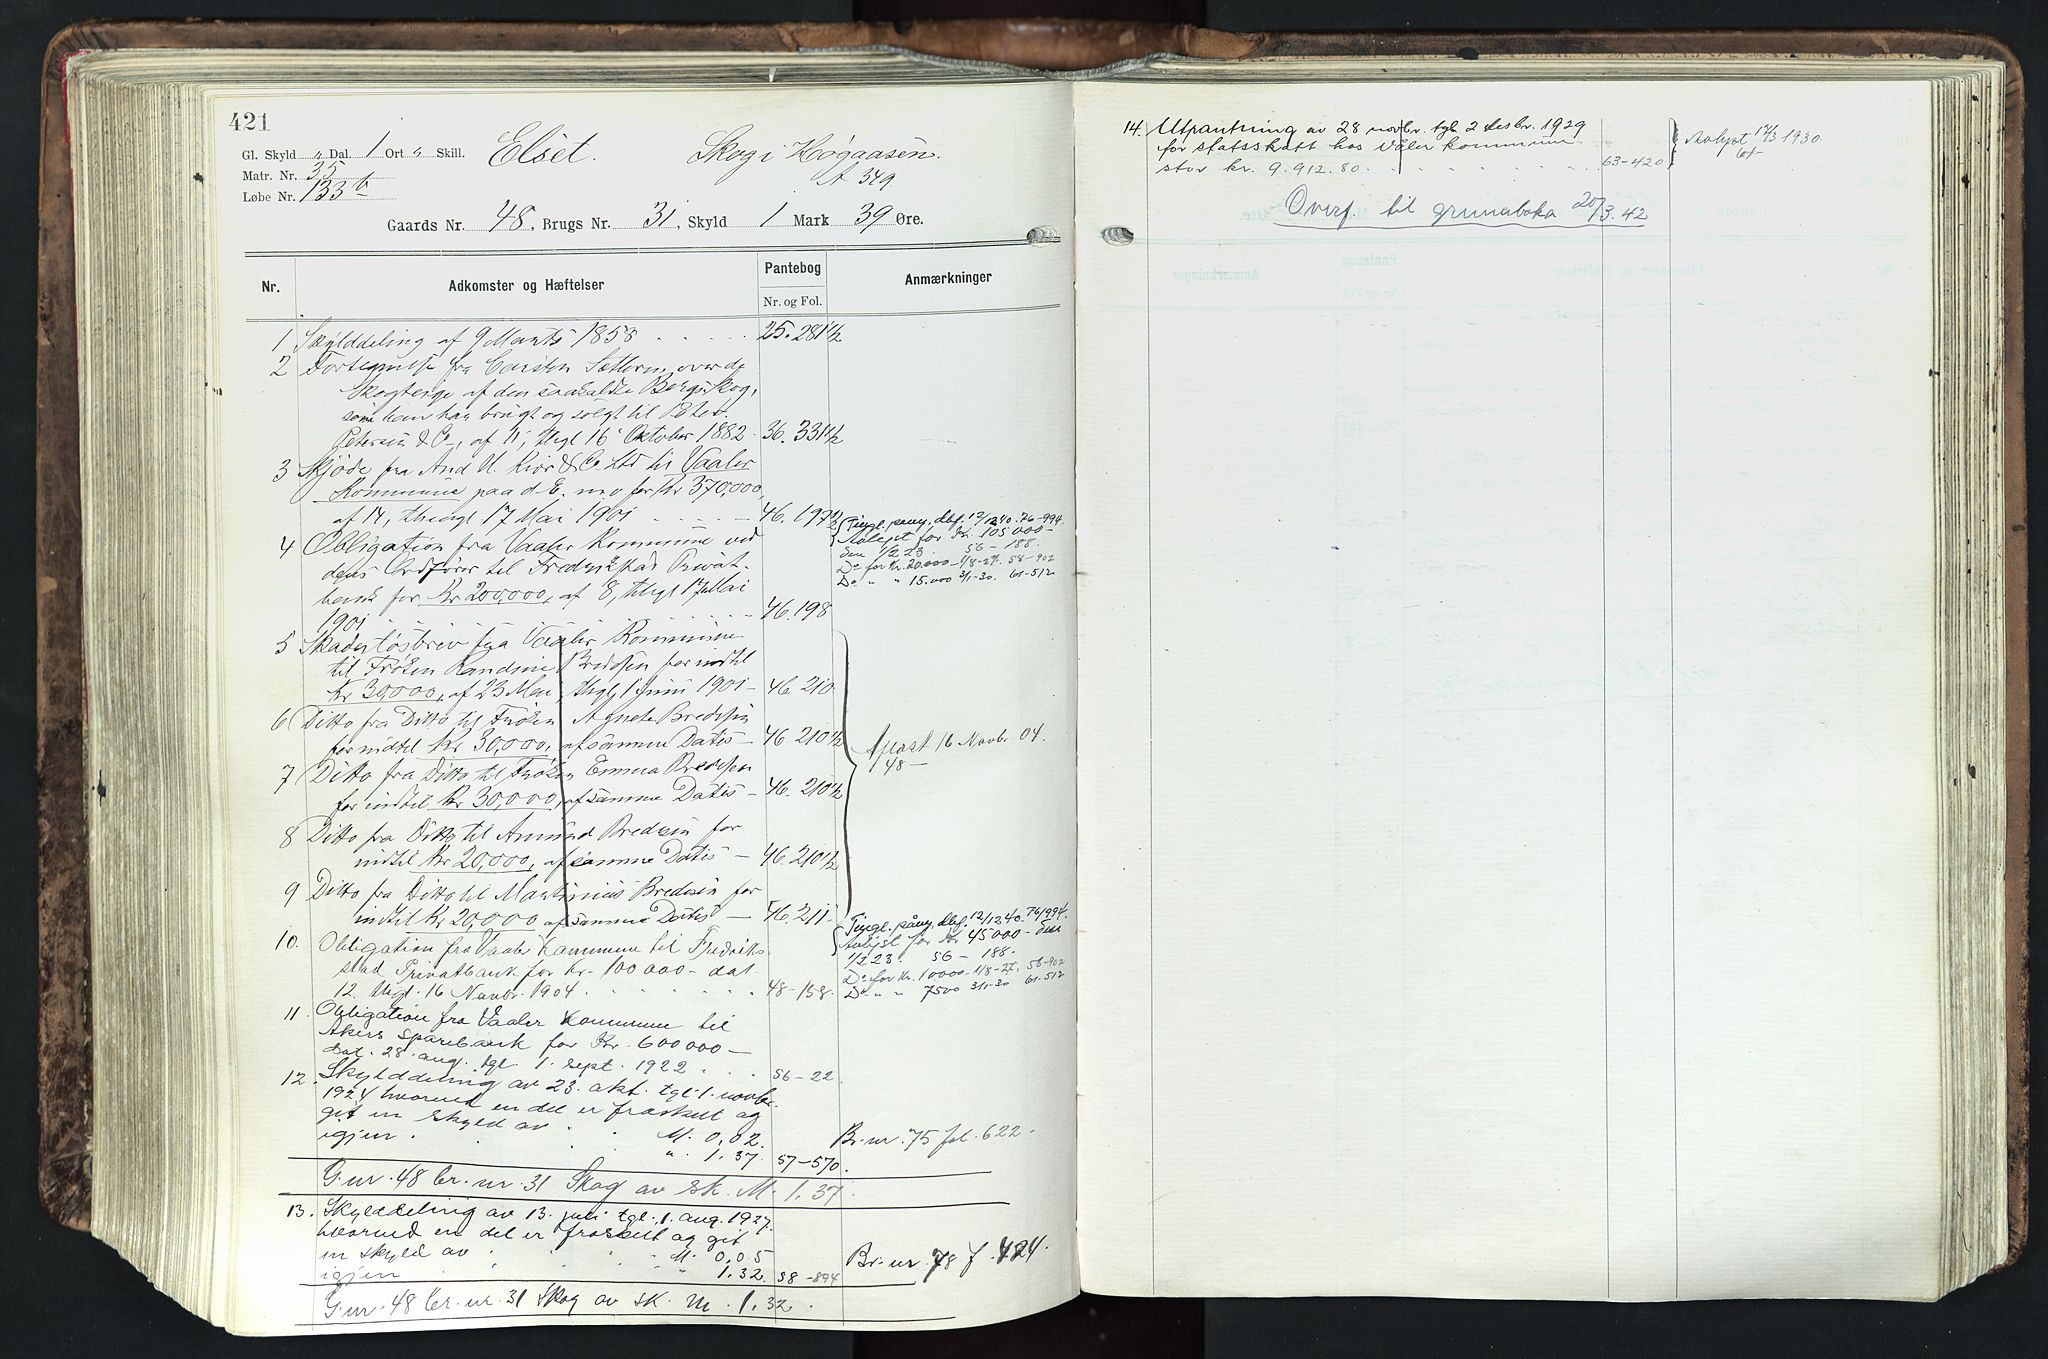 421
Gl. Skyld " Dal. 1 Ort " Skill.
Elset. Skog i Høgaasen.
Matr. Nr. 35
A 349
Løbe Nr. 133 b
Gaards Nr. 48, Brugs Nr. 31, Skyld 1 Mark 39 Øre.
Nr. Adkomster og Hæftelser Pantebog Anmærkninger
Nr. og Fol.
1 Skylddeling af 9 Marts 1858 25. 281 1/2
2 Fortegnelse fra Carsten over de
Skogteige af den saakaldte Bergskog,
som han har brugt og solgt til Peter
Petersen & Co, af 11, thgl 16 Oktober 1882 36. 331 1/2
3 Skjøde fra And H. Kiær & Co. Ltd til Vaaler
Kommune paa d. E. m. o for Kr 370,000,
af 14, thingl 17 Mai 1901 46. 197 1/2
4 Obligation fra Vaaler Kommune ved
dens Ordfører til Fredrikstad Privat-
bank for Kr 200,000, af 8, thgl 17 Mai
1901 46. 198
Tingl. påny, dbf. 12/12 40. 76-994.
Avlyst for Kr. 105 000-
den 1/2 23. 56 - 188.
Do for Kr. 20.000 - 1/8-27. 58-902
Do " " 15.000 3/1-30. 61-512
5 Skadesløsbrev fra Vaaler Kommune
til Frøken Randine Bredesen for indtil
Kr 30,000, af 23 Mai, thgl 1 Juni 1901 - 46 210
6 Ditto fra Ditto til Frøken Agnete Bredesen
for indtil Kr 30,000, af samme Datis - 46 210 1/2
7 Ditto fra Ditto til Frøken Emma Bredesen
for indtil Kr 30,000, af samme Datis - 46. 210 1/2
8 Ditto fra Ditto til Amund Bredesen for
indtil Kr 20,000, af samme Datis - 46. 210 1/2
9 Ditto fra Ditto til Martinius Bredesen for
indtil Kr 20,000 af samme Datis - 46. 211
Aflæst 16 Novbr 04.
48 -
10. Obligation fra Vaaler Kommune til Fredrik-
stad Privatbank for Kr. 100 000 - dat.
12. thgl. 16 Novbr. 1904 48-158.
Tingl. påny, dbf. 12/12 40. 76/994.
Avlyst for Kr 45000 - den
1/2 23. 56 - 188.
Do for Kr. 10000 - 1/8-27. 58-902
Do " " 7500 3/1-30 61-512
11. Obligation fra Vaaler Kommune til
Akers sparebank for Kr. 600 000 -
dat. 28. aug. tgl 1. sept. 1922 56-22.
12. Skylddeling av 23. okt. tgl. 1. novbr.
1924 hvorved en del er fraskilt og
git en skyld av M. 0,02.
igjen " 1,37. 57-570.
Br. nr. 75 fol. 622.
G. nr. 48 br. nr. 31 Skog av sk. M. 1,37.
13. Skylddeling av 13. juli tgl. 1. aug. 1927.
hvorved en del er fraskilt og git
en skyld av M. 0,05
igjen " 1,32. 58-894
Br. nr 78 f. 424.
G. nr. 48 br. nr. 31 Skog av sk. M. 1,32.
14. Utpantning av 28 novbr. tgl. 2 desbr. 1929
for statsskatt hos Våler kommune
stor kr. 9.912.80. 63-420
Avlyst 12/3 1930.
61-
Overf. til grunnboka 20/3. 42